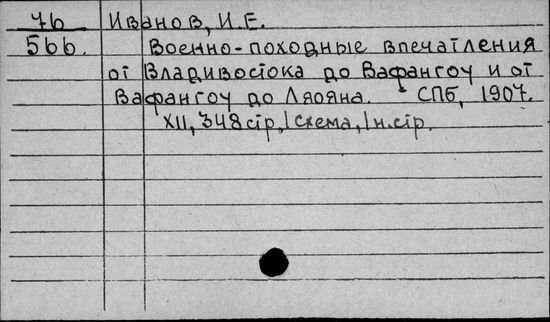 76 Иванов, И.Е.
566. Военно-походные впечатления
от Владивостока до Вафангоу и от
Вафангоу до Ляояна. СПб, 1907.
XII, 348 стр, 1 схема, 1 н.стр.